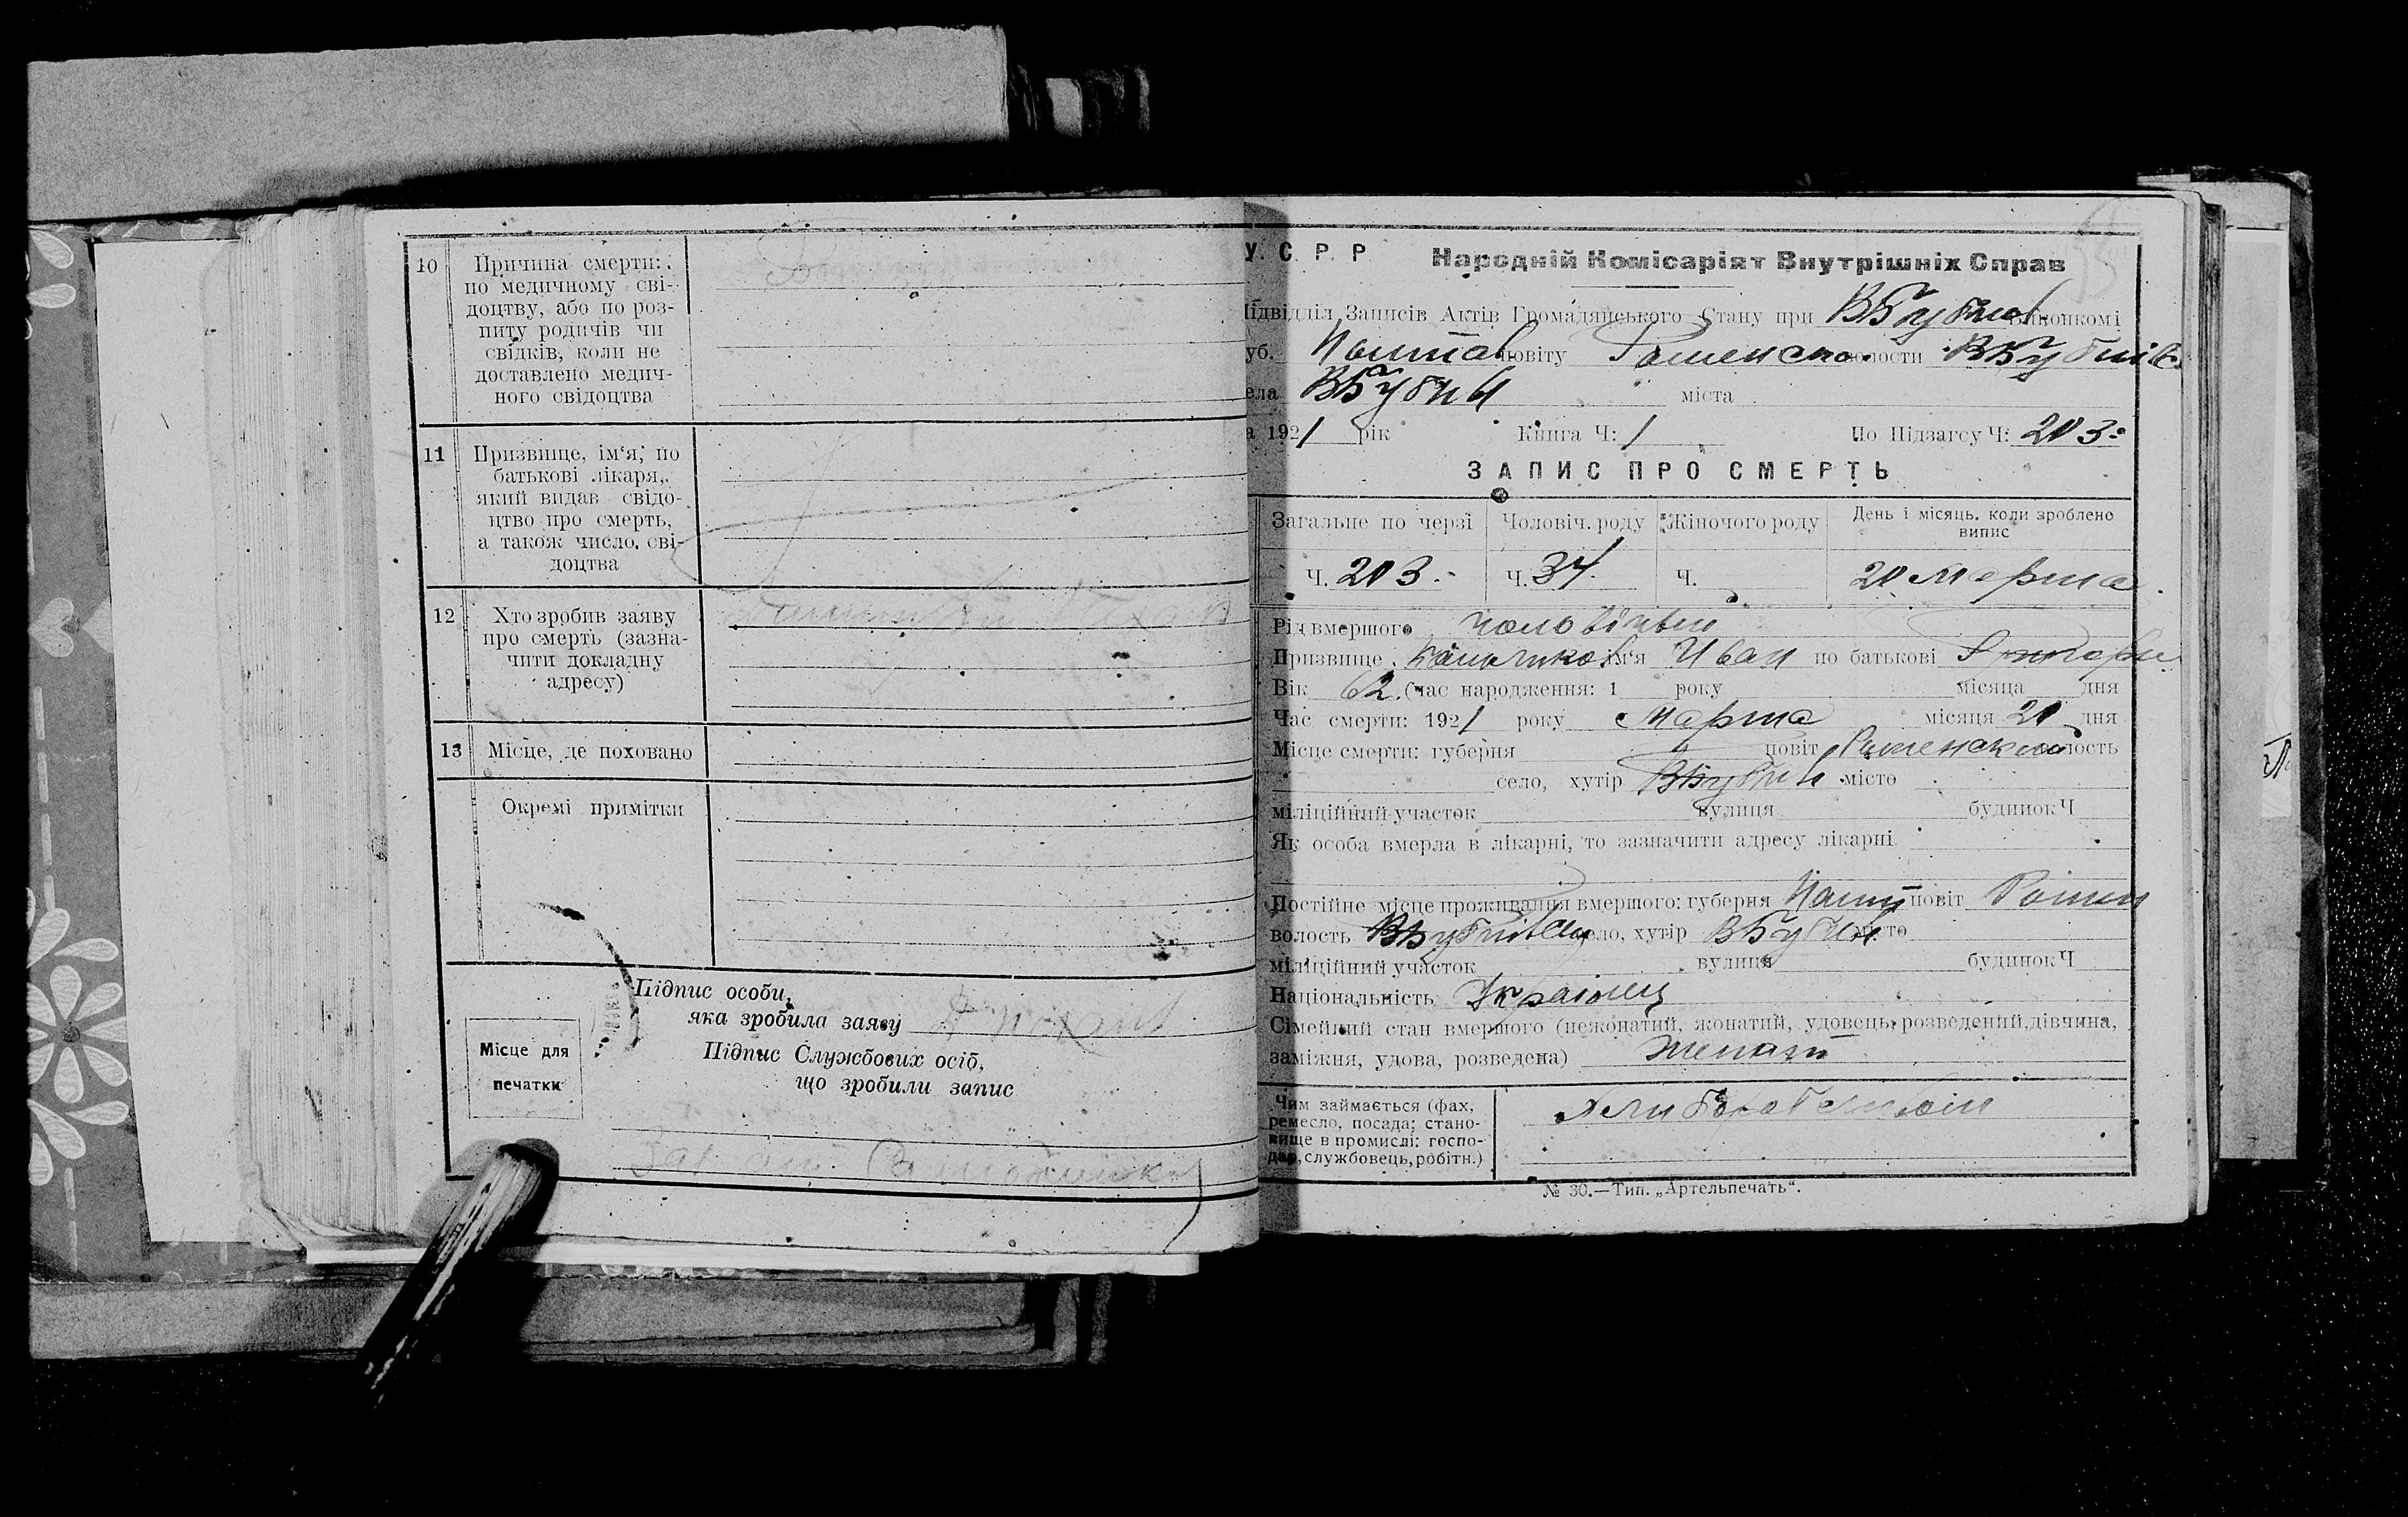 10 Причина смерти:
по медичному сві-
доцтву, або по роз-
питу родичів чи
свідків, коли не
доставлено медич-
ного свідоцтва
11 Призвище, ім'я, по
батькові лікаря,
який видав свідо-
цтво про смерть,
а також число, сві-
доцтва
12 Хто зробив заяву
про смерть (зазна-
чити докладну
адресу)
13 Місце, де поховано
Окремі примітки
Підпис особи,
яка зробила заяву
Підпис Службових осіб,
що зробили запис
Місце для
печатки
У. С. Р. Р Народній Комісаріят Внутрішніх Справ
Підвідділ Записів Актів Громадянського Стану при ВБубнов Виконкомі
уб. Полтав повіту Роменско волости ВБубнів
ела ВБубни міста
а 1921 рік Книга Ч: 1 По Підзагсу Ч: 203
ЗАПИС ПРО СМЕРТЬ
Загальне по черзі Чоловіч. роду Жіночого роду День і місяць, коли зроблено
випис
Ч. 203 Ч. 34. Ч. 20 Марта
Рід вмершого
Призвище ім'я Иван по батькові
Вік 62 (час народження: 1 року місяця дня
Час смерти: 1921 року Марта місяця 20 дня
Місце смерти: губерня повіт Роменский волость
село, хутір ВБубни місто
міліційний участок вулиця будинок Ч
Як особа вмерла в лікарні, то зазначити адресу лікарні
Постійне місце проживання вмершого: губерня Полт повіт Ромен
волость ВБубнівску село, хутір ВБубни місто
міліційний участок вулиця будинок Ч
Національність Украінец
Сімейний стан вмершого (нежонатий, жонатий, удовець, розведений, дівчина,
заміжня, удова, розведена) женат
Чим займається (фах,
ремесло, посада; стано-
вище в промислі: госпо-
дар, службовець, робітн.)
№ 30.—Тип. „Артельпечать“.